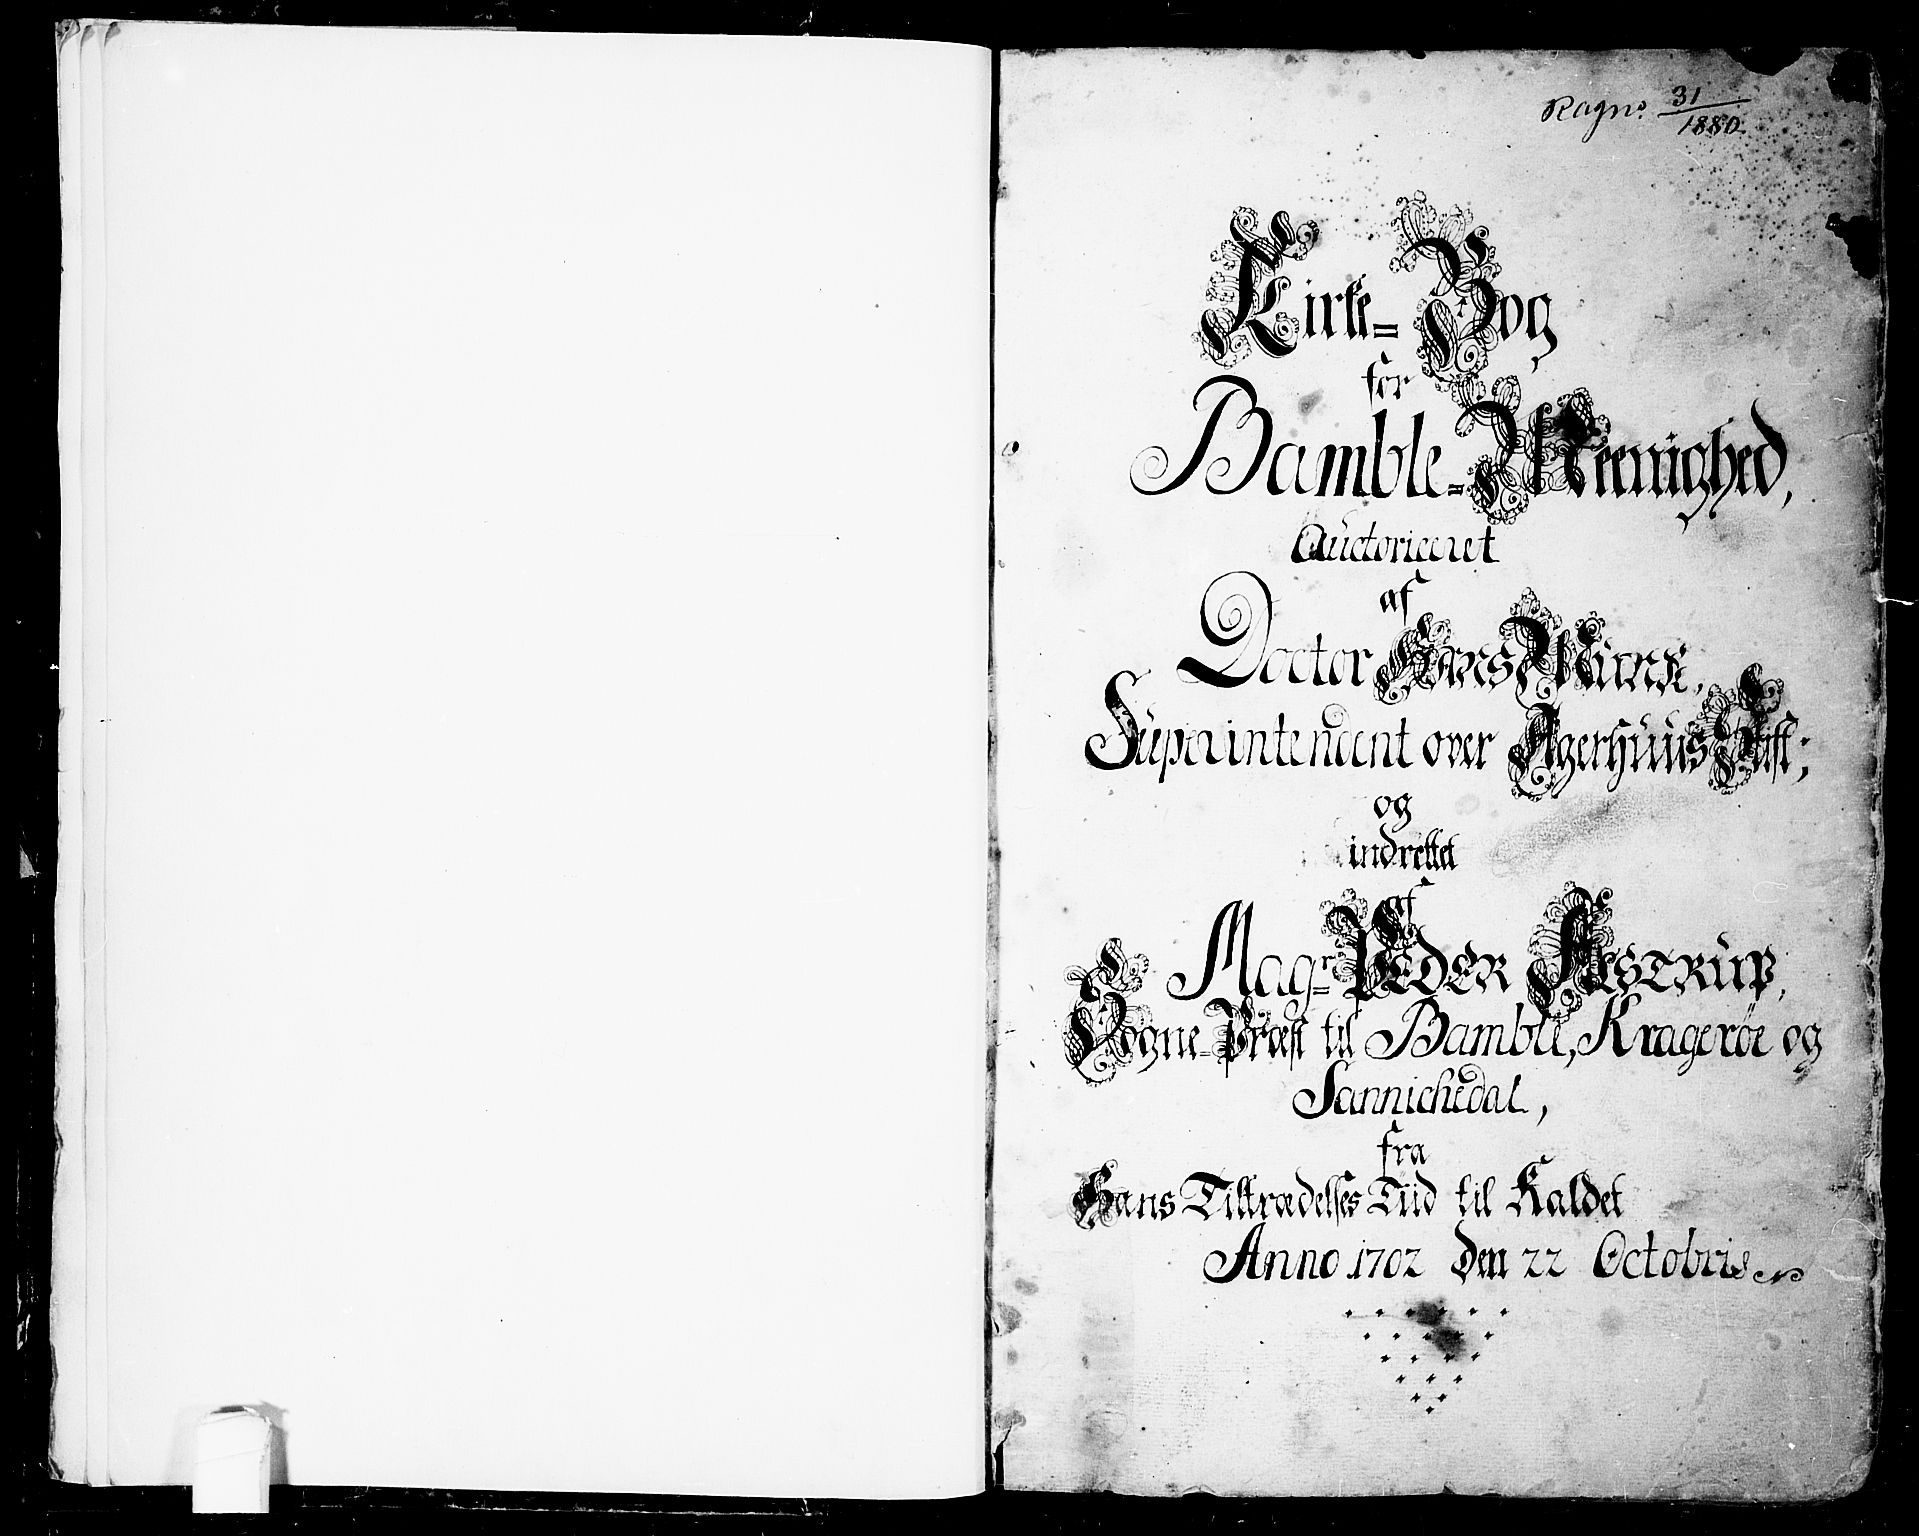 Ragn. 31/1880
Kirke=Bog
for
Bamble=Meenighed,
Auctoriceret
af
Doctor Hans Munk,
Superintendent over AgerhuusStift;
og
indrettet
af
Magr= PEDER AESTRUP,
Sogne=Præst til Bamble, Kragerøe og
Sannichedal,
fra
Hans Tiltrædelses Tiid til Kaldet
Anno 1702 den 22 Octobris